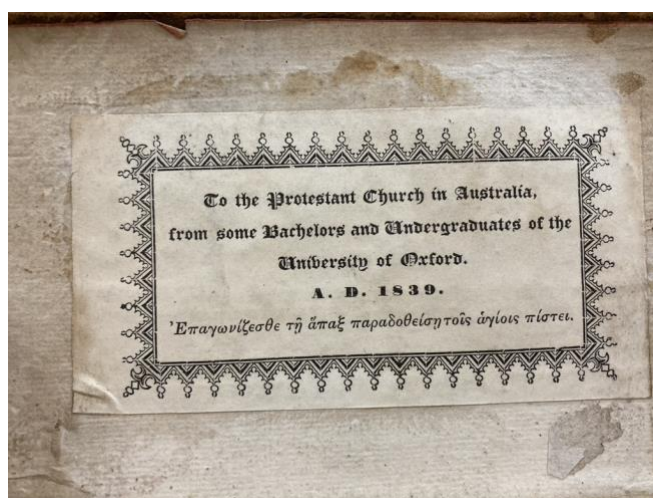 To the Protestant Church in Australia,
from some Bachelors and Undergraduates of the
University of Oxford.
A. D. 1839.
Ἐπαγωνίζεσθε τῇ ἅπαξ παραδοθείσῃ τοῖς ἁγίοις πίστει.